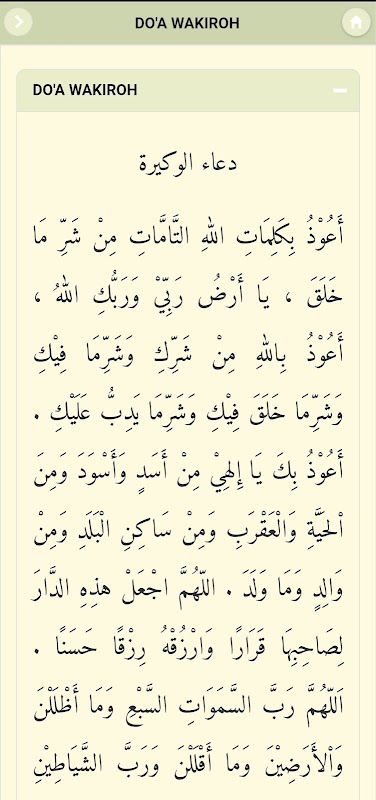 DO'A WAKIROH
DO'A WAKIROH
دعاء الوكيرة
أَعُوْذُ بِكَلِمَاتِ اللهِ التَّامَّاتِ مِنْ شَرِّ مَا
خَلَقَ ، يَا أَرْضُ رَبِّيْ وَرَبُّكِ اللهُ ،
أَعُوْذُ بِاللهِ مِنْ شَرِّكِ وَشَرِّمَا فِيْكِ
وَشَرِّمَا خَلَقَ فِيْكِ وَشَرِّمَا يَدِبُّ عَلَيْكِ .
أَعُوْذُ بِكَ يَا إِلهِيْ مِنْ أَسَدٍ وَأَسْوَدَ وَمِنَ
اْلحَيَّةِ وَالْعَقْرَبِ وَمِنْ سَاكِنِ الْبَلَدِ وَمِنْ
وَالِدٍ وَمَا وَلَدَ . اللّهُمَّ اجْعَلْ هذِهِ الدَّارَ
لِصَاحِبِهَا قَرَارًا وَارْزُقْهُ رِزْقًا حَسَنًا .
اَللّهُمَّ رَبَّ السَّمَوَاتِ السَّبْعِ وَمَا أَظْلَلْنَ
وَاْلأَرَضِيْنَ وَمَا أَقْلَلْنَ وَرَبَّ الشَّيَاطِيْنِ